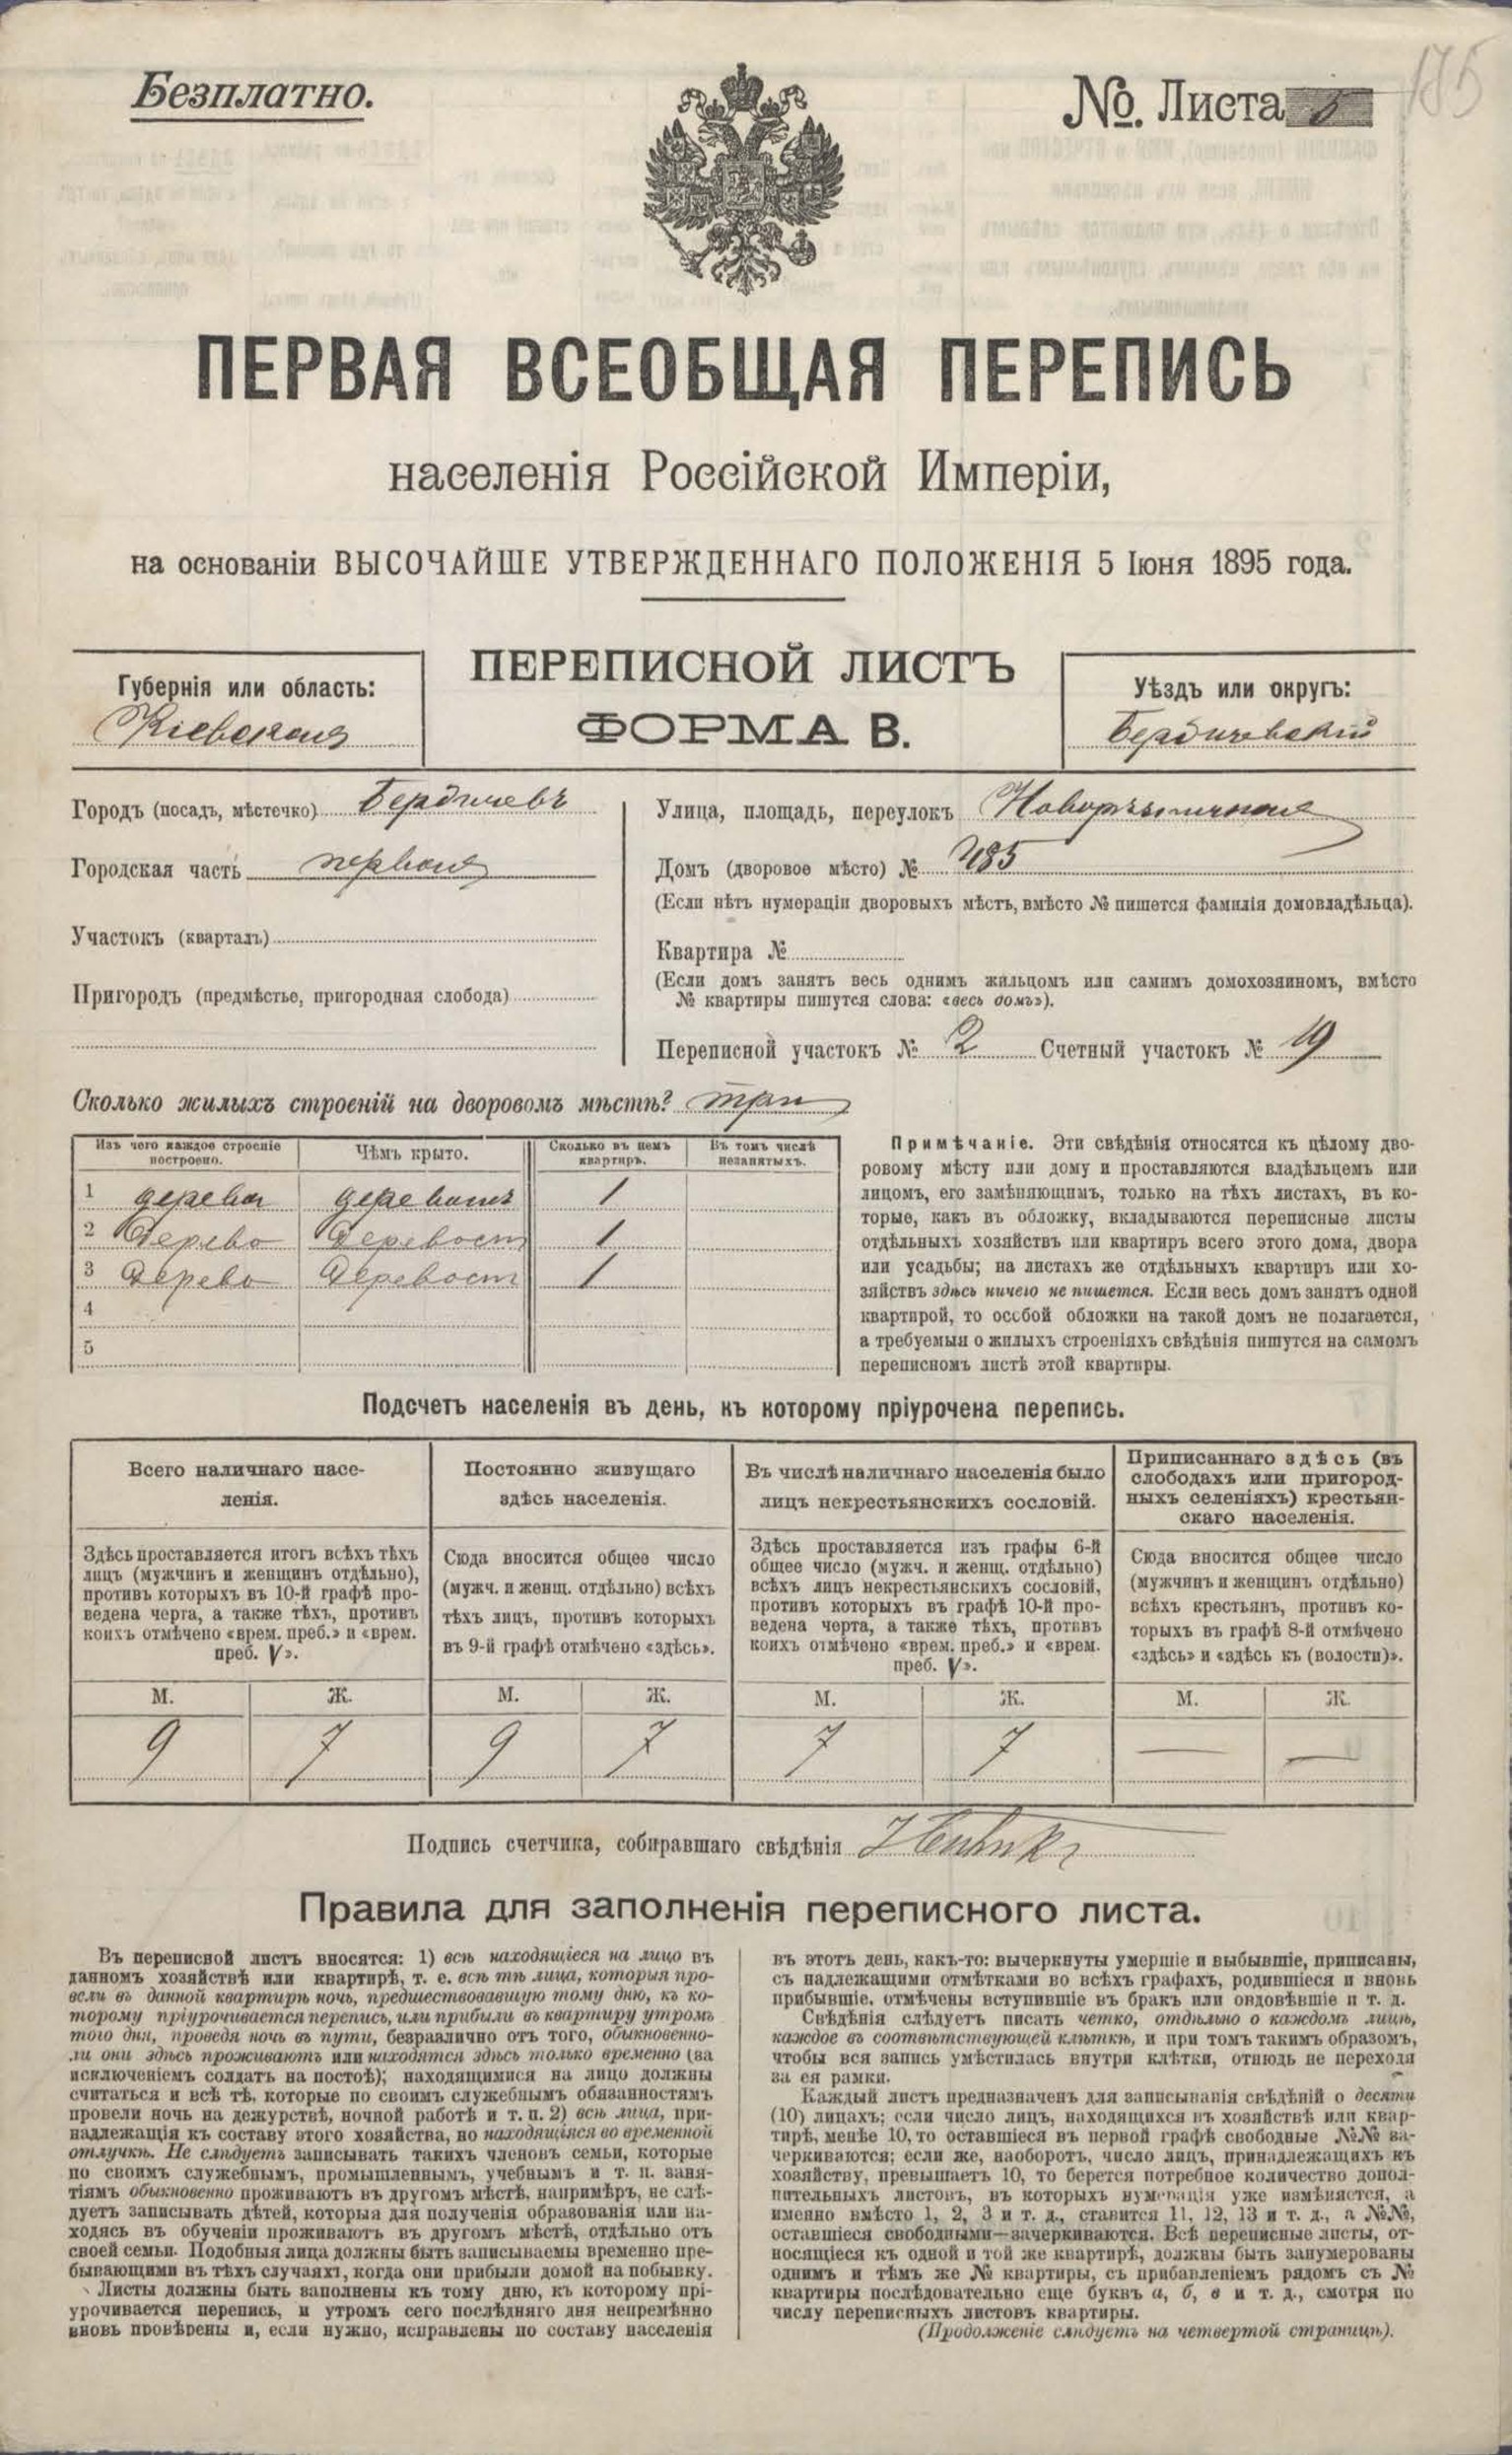 Безплатно.
№. Листа 5
185
ПЕРВАЯ ВСЕОБЩАЯ ПЕРЕПИСЬ
населенія Россійской Имперіи,
на основаніи ВЫСОЧАЙШЕ УТВЕРЖДЕННАГО ПОЛОЖЕНІЯ 5 Іюня 1895 года.
ПЕРЕПИСНОЙ ЛИСТЪ
ФОРМА В.
Губернія или область:
Кіевская
Уѣздъ или округъ:
Бердичевскій
Городъ (посадъ, мѣстечко) Бердичевъ
Городская часть первая
Участокъ (кварталъ)
Пригородъ (предмѣстье, пригородная слобода)
Улица, площадь, переулокъ
Домъ (дворовое мѣсто) № 485
(Если нѣтъ нумераціи дворовыхъ мѣстъ, вмѣсто № пишется фамилія домовладѣльца).
Квартира №
(Если домъ занятъ весь однимъ жильцомъ или самимъ домохозяиномъ, вмѣсто
№ квартиры пишутся слова: «весь домъ»).
Переписной участокъ № 2 Счетный участокъ № 19
Сколько жилыхъ строеній на дворовомъ мѣстѣ? три
Изъ чего каждое строеніе построено. Чѣмъ крыто. Сколько въ немъ квартиръ. Въ томъ числѣ незанятыхъ.
1 дерева деревомъ 1
2 Дерево Деревом 1
3 Дерево Деревом 1
4
5
Примѣчаніе. Эти свѣдѣнія относятся къ цѣлому дво-
ровому мѣсту или дому и проставляются владѣльцемъ или
лицомъ, его замѣняющимъ, только на тѣхъ листахъ, въ ко-
торые, какъ въ обложку, вкладываются переписные листы
отдѣльныхъ хозяйствъ или квартиръ всего этого дома, двора
или усадьбы; на листахъ же отдѣльныхъ квартиръ или хо-
зяйствъ здѣсь ничего не пишется. Если весь домъ занятъ одной
квартирой, то особой обложки на такой домъ не полагается,
а требуемыя о жилыхъ строеніяхъ свѣдѣнія пишутся на самомъ
переписномъ листѣ этой квартиры.
Подсчетъ населенія въ день, къ которому пріурочена перепись.
Всего наличнаго насе-
ленія.
Здѣсь проставляется итогъ всѣхъ тѣхъ
лицъ (мужчинъ и женщинъ отдѣльно),
противъ которыхъ въ 10-й графѣ про-
ведена черта, а также тѣхъ, противъ
коихъ отмѣчено «врем. преб.» и «врем.
преб. V».
М. Ж.
9 7
Постоянно живущаго
здѣсь населенія.
Сюда вносится общее число
(мужч. и женщ. отдѣльно) всѣхъ
тѣхъ лицъ, противъ которыхъ
въ 9-й графѣ отмѣчено «здѣсь».
М. Ж.
9 7
Въ числѣ наличнаго населенія было
лицъ некрестьянскихъ сословій.
Здѣсь проставляется изъ графы 6-й
общее число (мужч. и женщ. отдѣльно)
всѣхъ лицъ некрестьянскихъ сословій,
противъ которыхъ въ графѣ 10-й про-
ведена черта, а также тѣхъ, противъ
коихъ отмѣчено «врем. преб.» и «врем.
преб. V».
М. Ж.
7 7
Приписаннаго здѣсь (въ
слободахъ или пригород-
ныхъ селеніяхъ) крестьян-
скаго населенія.
Сюда вносится общее число
(мужчинъ и женщинъ отдѣльно)
всѣхъ крестьянъ, противъ ко-
торыхъ въ графѣ 8-й отмѣчено
«здѣсь» и «здѣсь къ (волости)».
М. Ж.
— —
Подпись счетчика, собиравшаго свѣдѣнія
Правила для заполненія переписного листа.
Въ переписной листъ вносятся: 1) всѣ находящіеся на лицо въ
данномъ хозяйствѣ или квартирѣ, т. е. всѣ тѣ лица, которыя про-
вели въ данной квартирѣ ночь, предшествовавшую тому дню, къ ко-
торому пріурочивается перепись, или прибыли въ квартиру утромъ
того дня, проведя ночь въ пути, безразлично отъ того, обыкновенно-
ли они здѣсь проживаютъ или находятся здѣсь только временно (за
исключеніемъ солдатъ на постоѣ); находящимися на лицо должны
считаться и всѣ тѣ, которые по своимъ служебнымъ обязанностямъ
провели ночь на дежурствѣ, ночной работѣ и т. п. 2) всѣ лица, при-
надлежащія къ составу этого хозяйства, но находящіяся во временной
отлучкѣ. Не слѣдуетъ записывать такихъ членовъ семьи, которые
по своимъ служебнымъ, промышленнымъ, учебнымъ и т. п. заня-
тіямъ обыкновенно проживаютъ въ другомъ мѣстѣ, напримѣръ, не слѣ-
дуетъ записывать дѣтей, которыя для полученія образованія или на-
ходясь въ обученіи проживаютъ въ другомъ мѣстѣ, отдѣльно отъ
своей семьи. Подобныя лица должны быть записываемы временно пре-
бывающими въ тѣхъ случаяхъ, когда они прибыли домой на побывку.
Листы должны быть заполнены къ тому дню, къ которому прі-
урочивается перепись, и утромъ сего послѣдняго дня непремѣнно
вновь провѣрены и, если нужно, исправлены по составу населенія
въ этотъ день, какъ-то: вычеркнуты умершіе и выбывшіе, приписаны,
съ надлежащими отмѣтками во всѣхъ графахъ, родившіеся и вновь
прибывшіе, отмѣчены вступившіе въ бракъ или овдовѣвшіе и т. д.
Свѣдѣнія слѣдуетъ писать четко, отдѣльно о каждомъ лицѣ,
каждое въ соотвѣтствующей клѣткѣ, и при томъ такимъ образомъ,
чтобы вся запись умѣстилась внутри клѣтки, отнюдь не переходя
за ея рамки.
Каждый листъ предназначенъ для записыванія свѣдѣній о десяти
(10) лицахъ; если число лицъ, находящихся въ хозяйствѣ или квар-
тирѣ, менѣе 10, то оставшіеся въ первой графѣ свободные №№ за-
черкиваются; если же, наоборотъ, число лицъ, принадлежащихъ къ
хозяйству, превышаетъ 10, то берется потребное количество допол-
нительныхъ листовъ, въ которыхъ нумерація уже измѣняется, а
именно вмѣсто 1, 2, 3 и т. д., ставится 11, 12, 13 и т. д., а №№,
оставшіеся свободными—зачеркиваются. Всѣ переписные листы, от-
носящіеся къ одной и той же квартирѣ, должны быть занумерованы
однимъ и тѣмъ же № квартиры, съ прибавленіемъ рядомъ съ №
квартиры послѣдовательно еще буквъ а, б, в и т. д., смотря по
числу переписныхъ листовъ квартиры.
(Продолженіе слѣдуетъ на четвертой страницѣ).